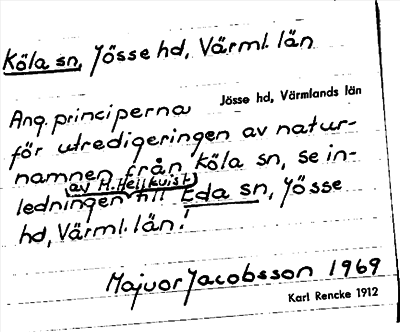 Köla sn, Jösse hd, Värml. län
Jösse hd, Värmlands län
Ang. principerna
för utredigeringen av natur-
namnen från Köla sn, se in-
av M. Hellkvist
ledningen till Eda sn, Jösse
hd, Värml. län!
Majvor Jacobsson 1969
Karl Rencke 1912